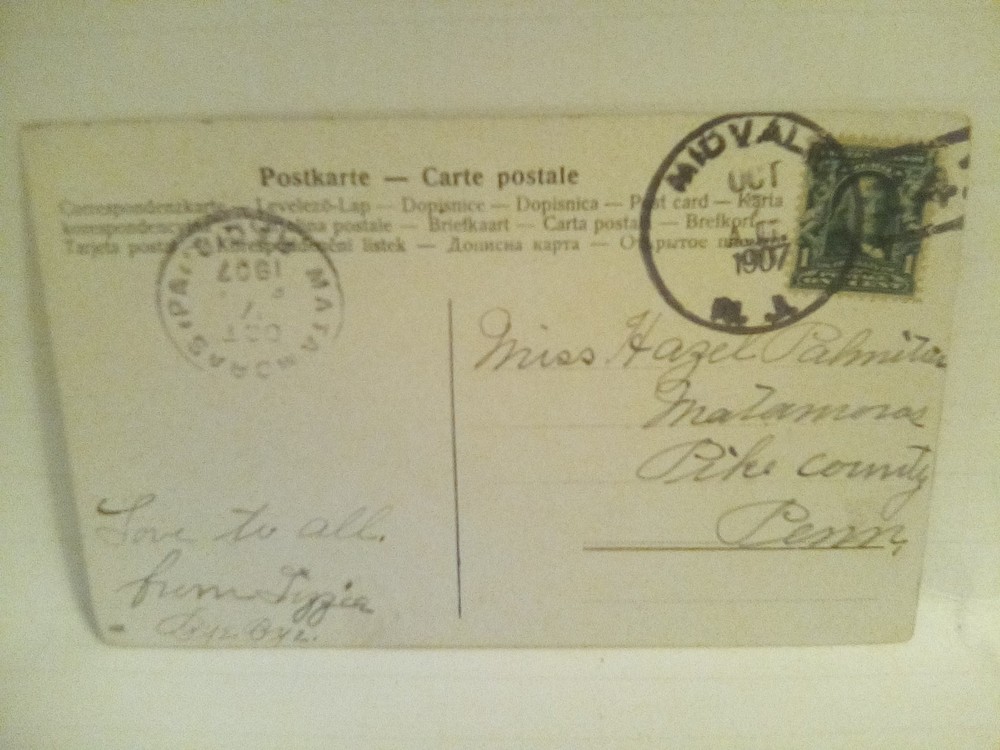 Postkarte — Carte postale
Correspondenzkarte — Levelező-Lap — Dopisnice — Dopisnica — Post card — Karta
korespondencyjna — postale — Briefkaart — Carta postal — Brefkort
Tarjeta postal — Korespondenční lístek — Дописна карта — Открытое письмо
MIDVALE
OCT
1907
N. J.
MATAMORAS, PA.
OCT
7
1907
Miss Hazel Palmitar
Matamoras
Pike county
Penn,
Love to all.
from Lizzie